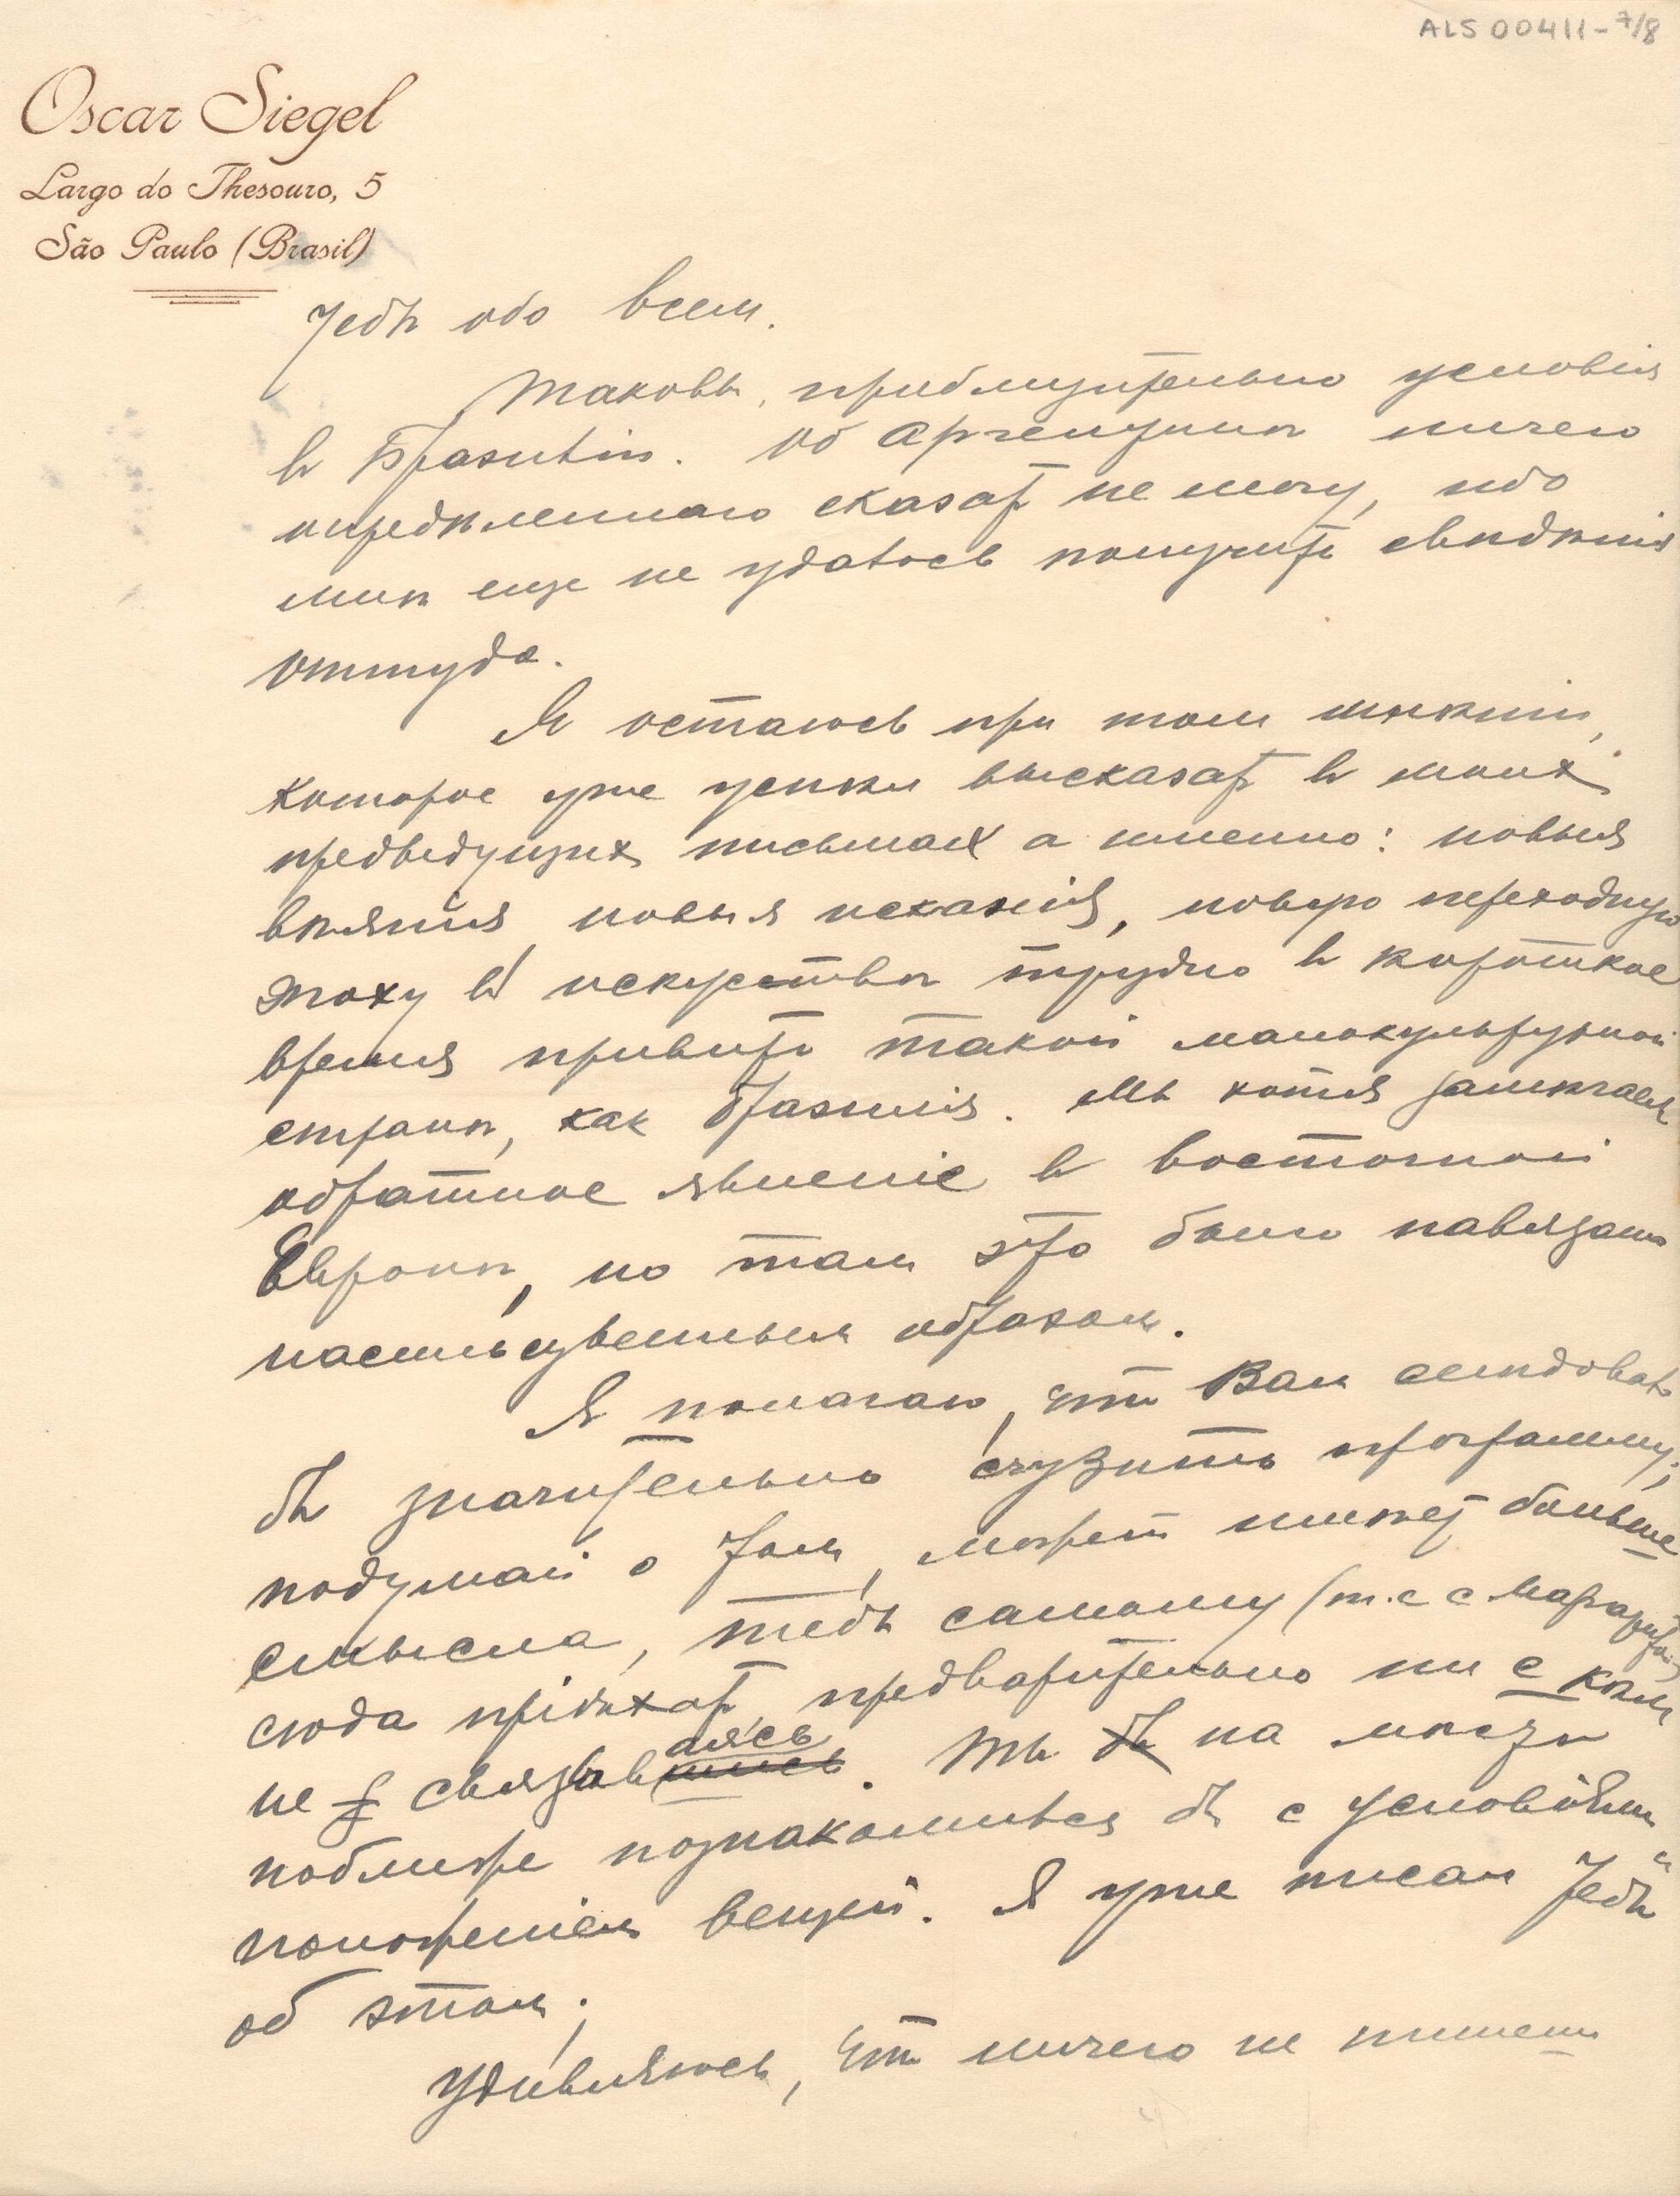 ALS 00411-7/8
Oscar Siegel
Largo do Thesouro, 5
São Paulo (Brasil)
Тебѣ обо всем.
Таковы приблизительно условія
в Бразиліи. Об Аргентинѣ ничего
опредѣленнаго сказать не могу, ибо
мнѣ еще не удалось получить свѣдѣнія
оттуда.
Я остаюсь при том мнѣніи,
которое уже успѣл высказать в моих
предыдущих письмах а именно: новыя
вліянія, новыя исканія, новую переходную
эпоху в искусствѣ трудно в короткое
время привить такой малокультурной
странѣ, как Бразилія. Мы хотя замѣчаем
обратное явленіе в восточной
Европѣ, но там это было навязано
насильственным образом.
Я полагаю, что Вам слѣдовало
бы значительно сузить программу;
подумай о том, может имѣет больше
смысла, тебѣ самому (т.е с Маргаритой)
сюда пріѣхать предварительно ни с кѣм
не связываясь. Ты бы на мѣстѣ
поближе познакомился бы с условіями и
положеніем вещей. Я уже писал Тебѣ
об этом;
удивляюсь, что ничего не пишешь